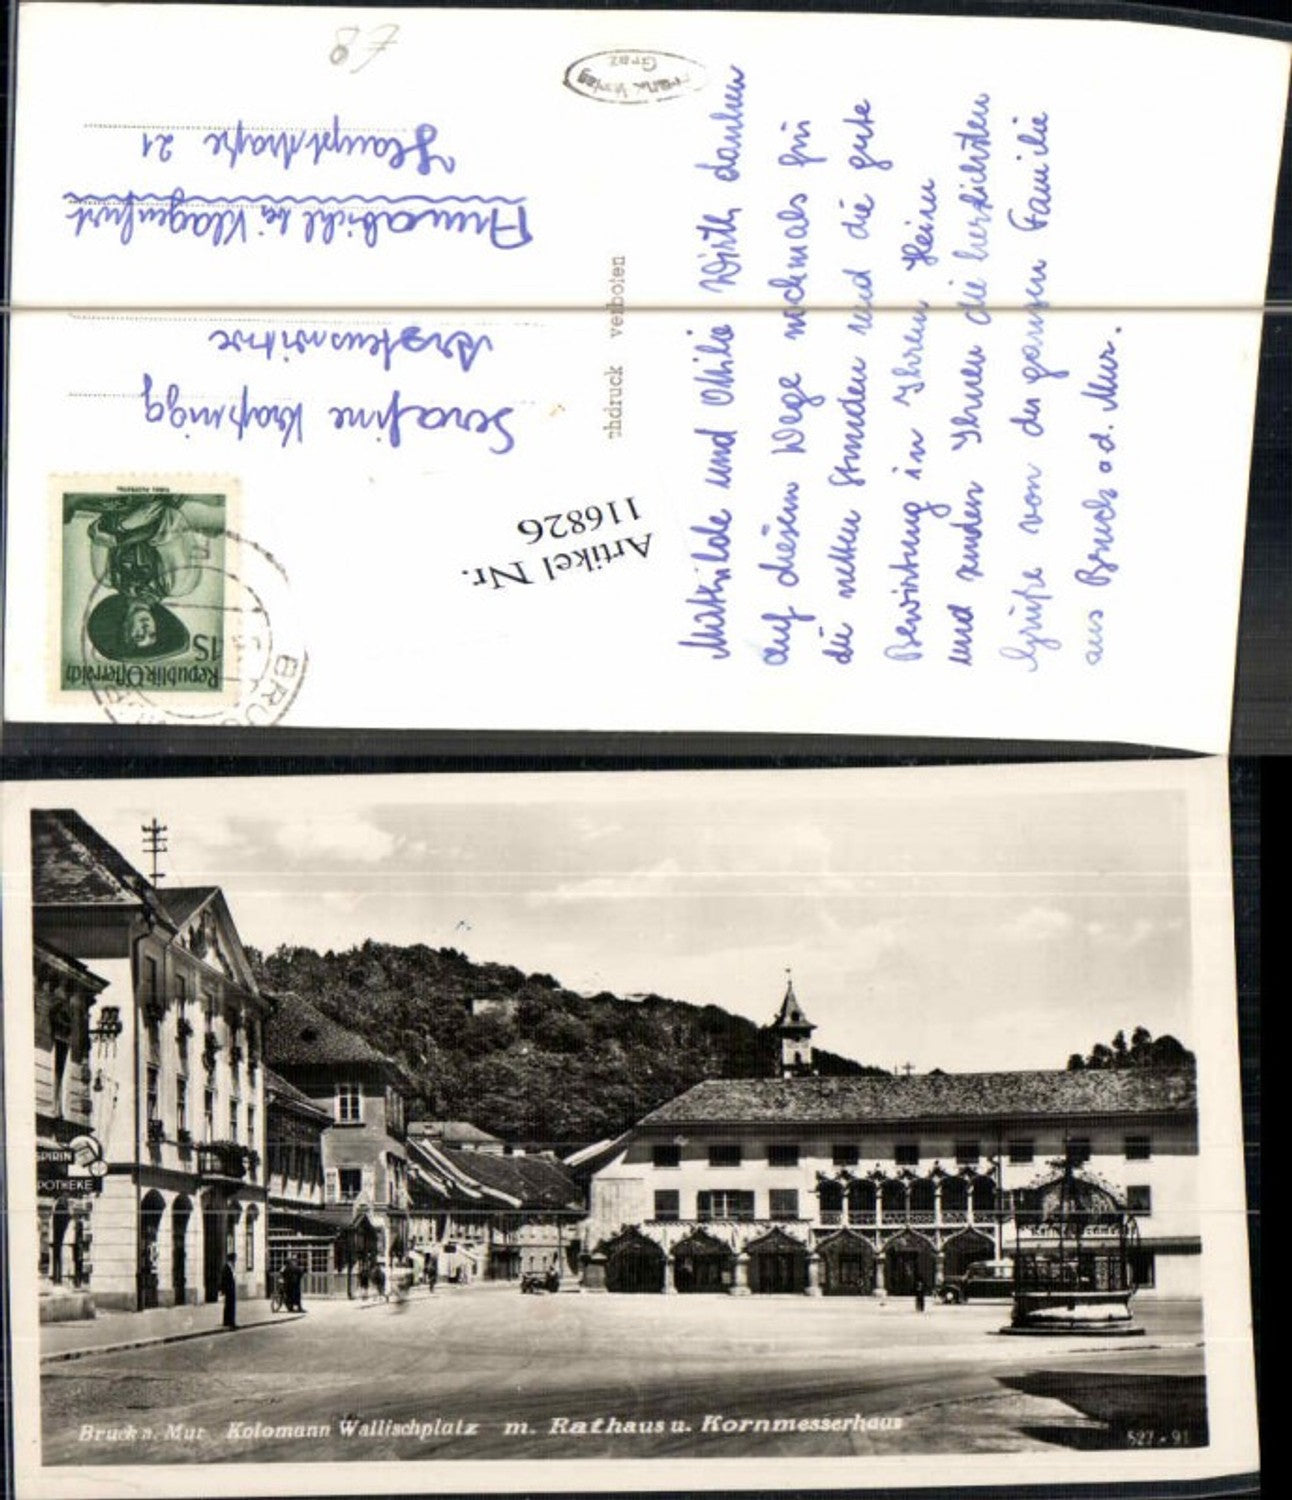 Mathilde und Ottilie Wirth danken
auf diesem Wege nochmals für
die netten Stunden und die gute
Bewirtung in Ihrem Heim
und senden Ihnen die herzlichsten
Grüße von der ganzen Familie
aus Bruck a.d. Mur.
Serafine
Annabichl bei Klagenfurt
Hauptstraße 21
Verlag
Graz
chdruck verboten
Artikel Nr.
116826
Republik Österreich
1S
BRUC
SPIRIN
POTHEKE
Bruck a. Mur Kolomann Wallischplatz m. Rathaus u. Kornmesserhaus
527 - 91